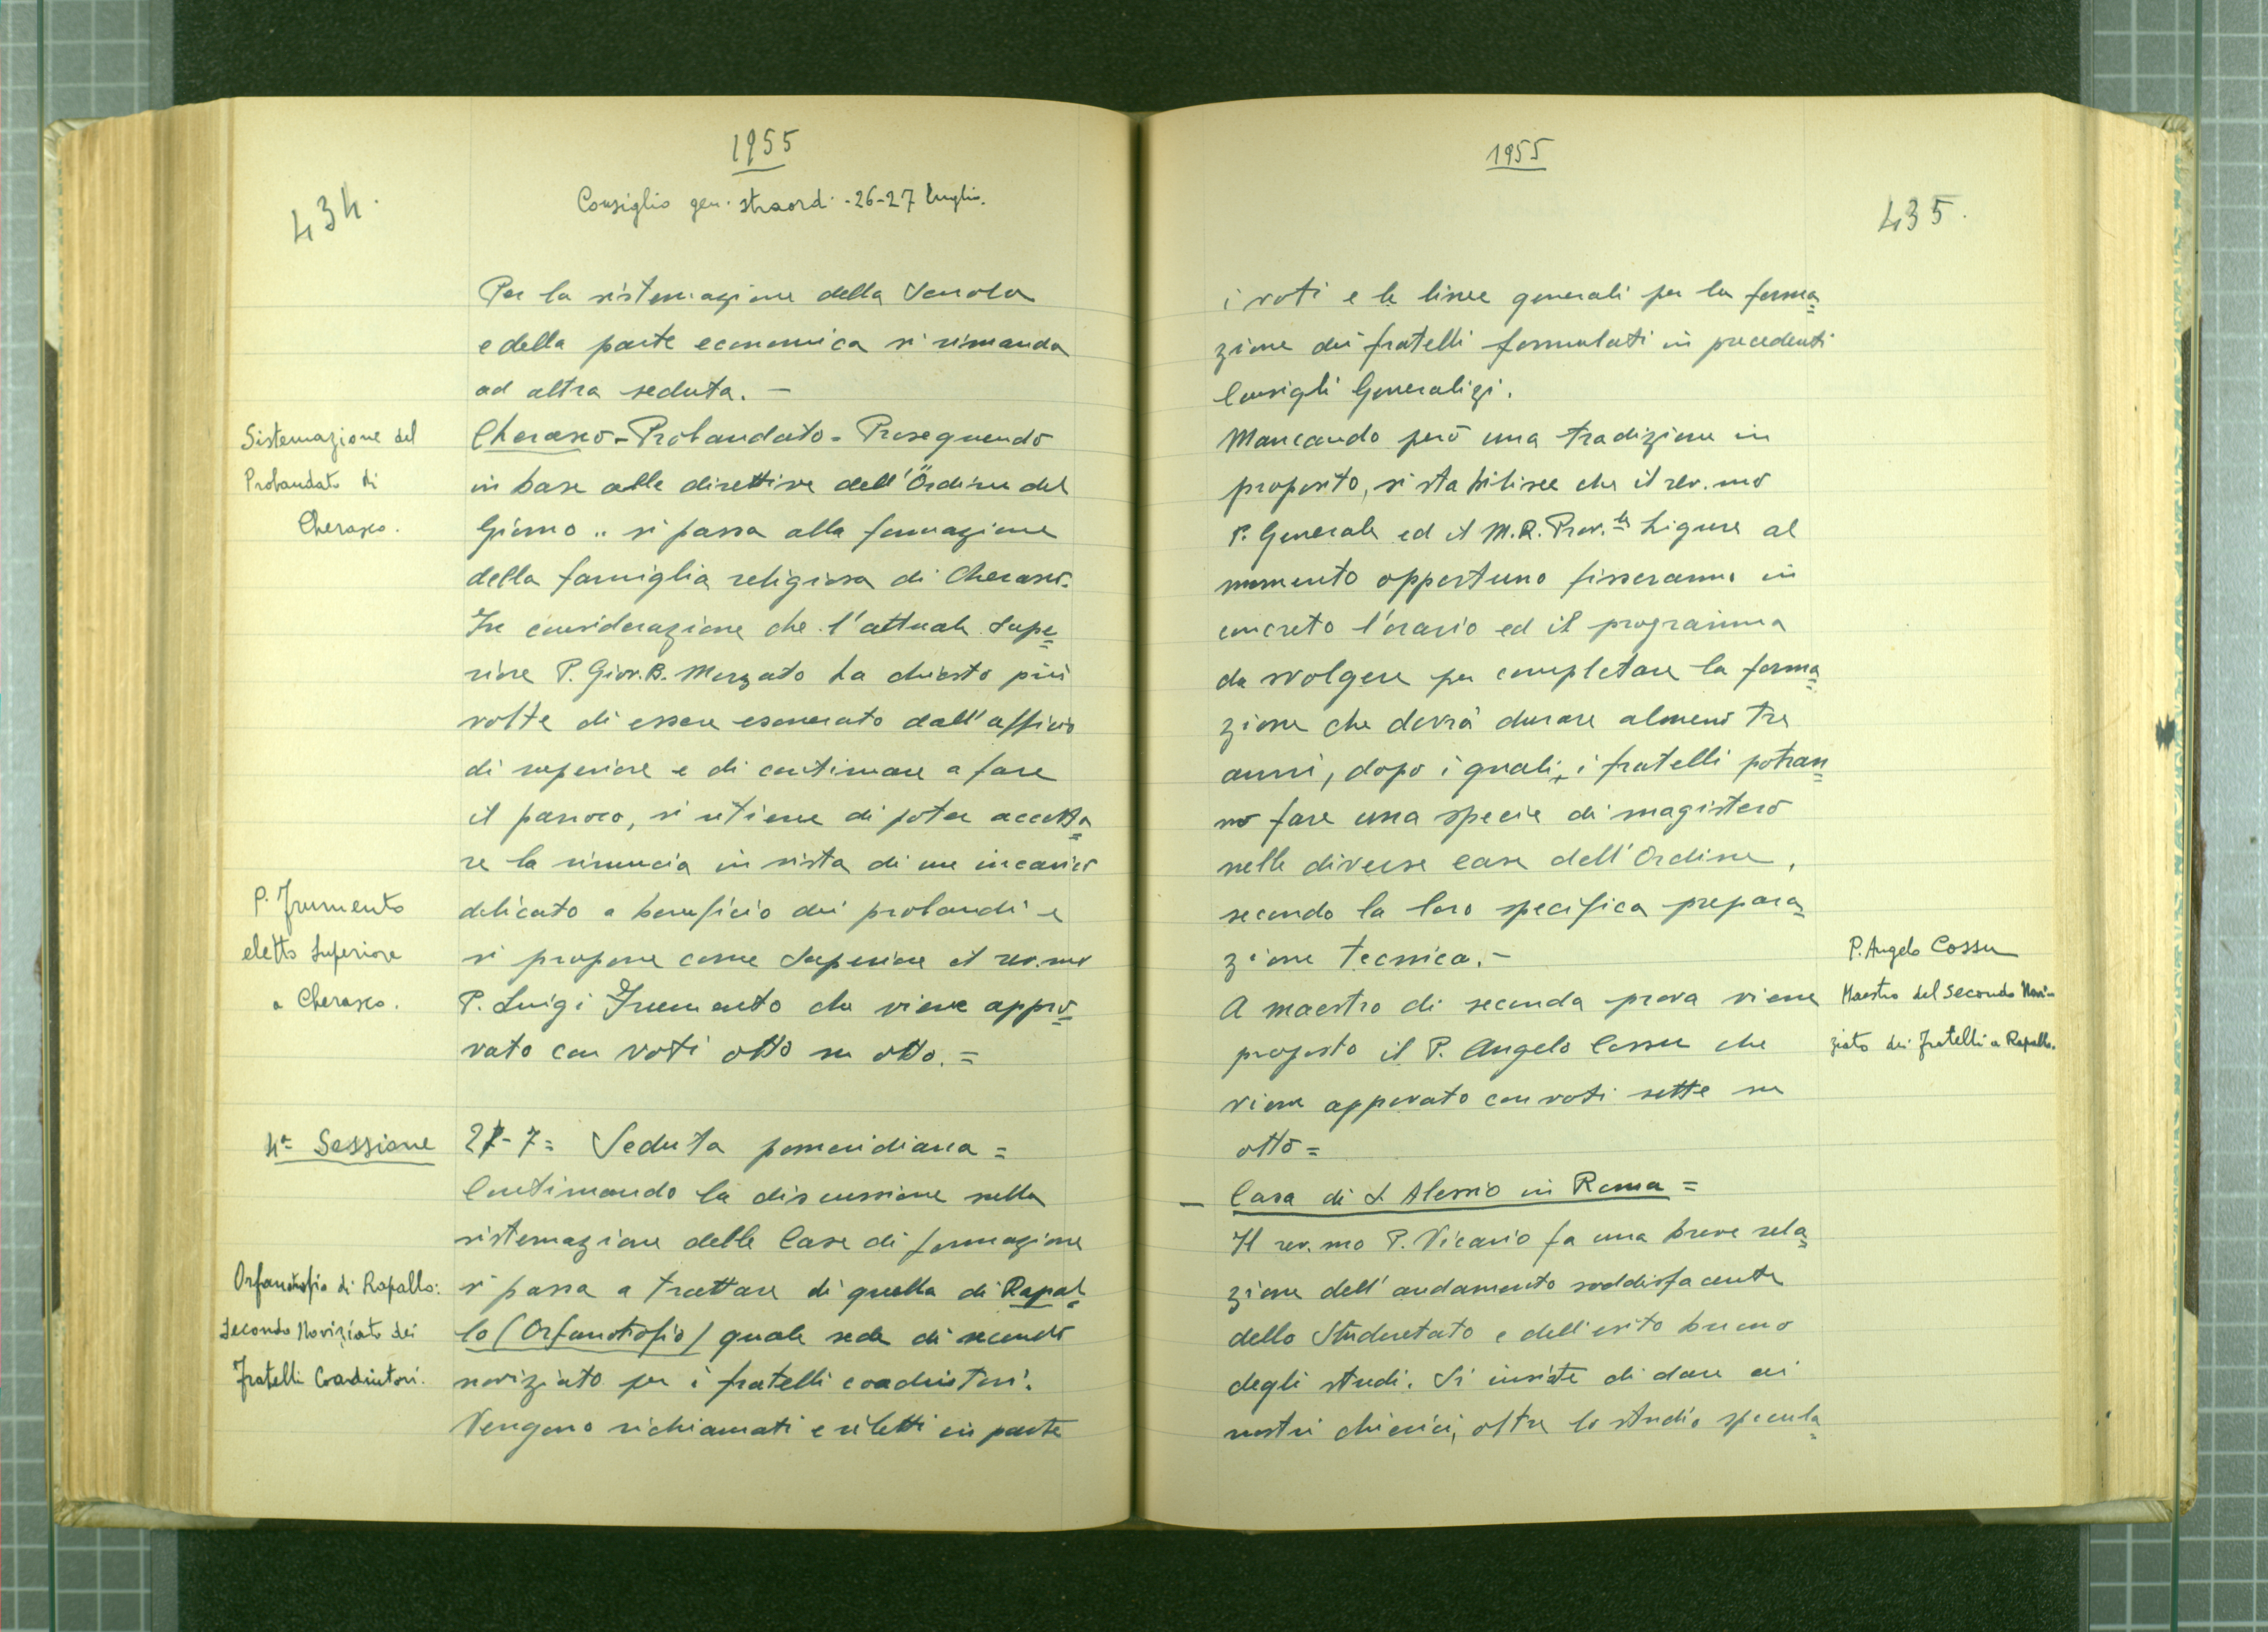 1955
Consiglio gen. straord. - 26-27 luglio.
434.
Per la sistemazione della Scuola
e della parte economica si rimanda
ad altra seduta. -
Sistemazione del
Probandato di
Cherasco.
Cherasco - Probandato = Proseguendo
in base alle direttive dell'"Ordine del
Giorno" si passa alla formazione
della famiglia religiosa di Cherasco.
In considerazione che l'attuale Supe=
riore P. Giov. B. Merzato ha chiesto più
volte di essere esonerato dall'ufficio
di superiore e di continuare a fare
il parroco, si ritiene di poter accetta=
re la rinuncia in vista di un incarico
P. Frumento
eletto Superiore
a Cherasco.
delicato a beneficio dei probandi e
si propone come Superiore il rev.mo
P. Luigi Frumento che viene appro=
vato con voti otto su otto. =
4a Sessione
27-7 = Seduta pomeridiana =
Continuando la discussione sulla
sistemazione delle Case di formazione
Orfanotrofio di Rapallo:
Secondo Noviziato dei
Fratelli Coadiutori.
si passa a trattare di quella di Rapal=
lo (Orfanotrofio) quale sede di secondo
noviziato per i fratelli coadiutori.
Vengono richiamati e riletti in parte
1955
435.
i voti e le linee generali per la forma=
zione dei fratelli formulati in precedenti
Consigli Generalizi.
Mancando però una tradizione in
proposito, si stabilisce che il rev.mo
P. Generale ed il M.R. Prov.le Ligure al
momento opportuno fisseranno in
concreto l'orario ed il programma
da svolgere per completare la forma=
zione che dovrà durare almeno tre
anni, dopo i quali, i fratelli potran=
no fare una specie di magistero
nelle diverse case dell'Ordine,
secondo la loro specifica prepara=
zione tecnica. -
P. Angelo Cossu
Maestro del Secondo Novi-
ziato dei Fratelli a Rapallo.
A maestro di seconda prova viene
proposto il P. Angelo Cossu che
viene approvato con voti sette su
otto =
- Casa di S. Alessio in Roma =
Il rev.mo P. Vicario fa una breve rela=
zione dell'andamento soddisfacente
dello Studentato e dell'esito buono
degli studi. Si insiste di dare ai
nostri chierici, oltre lo studio specula=